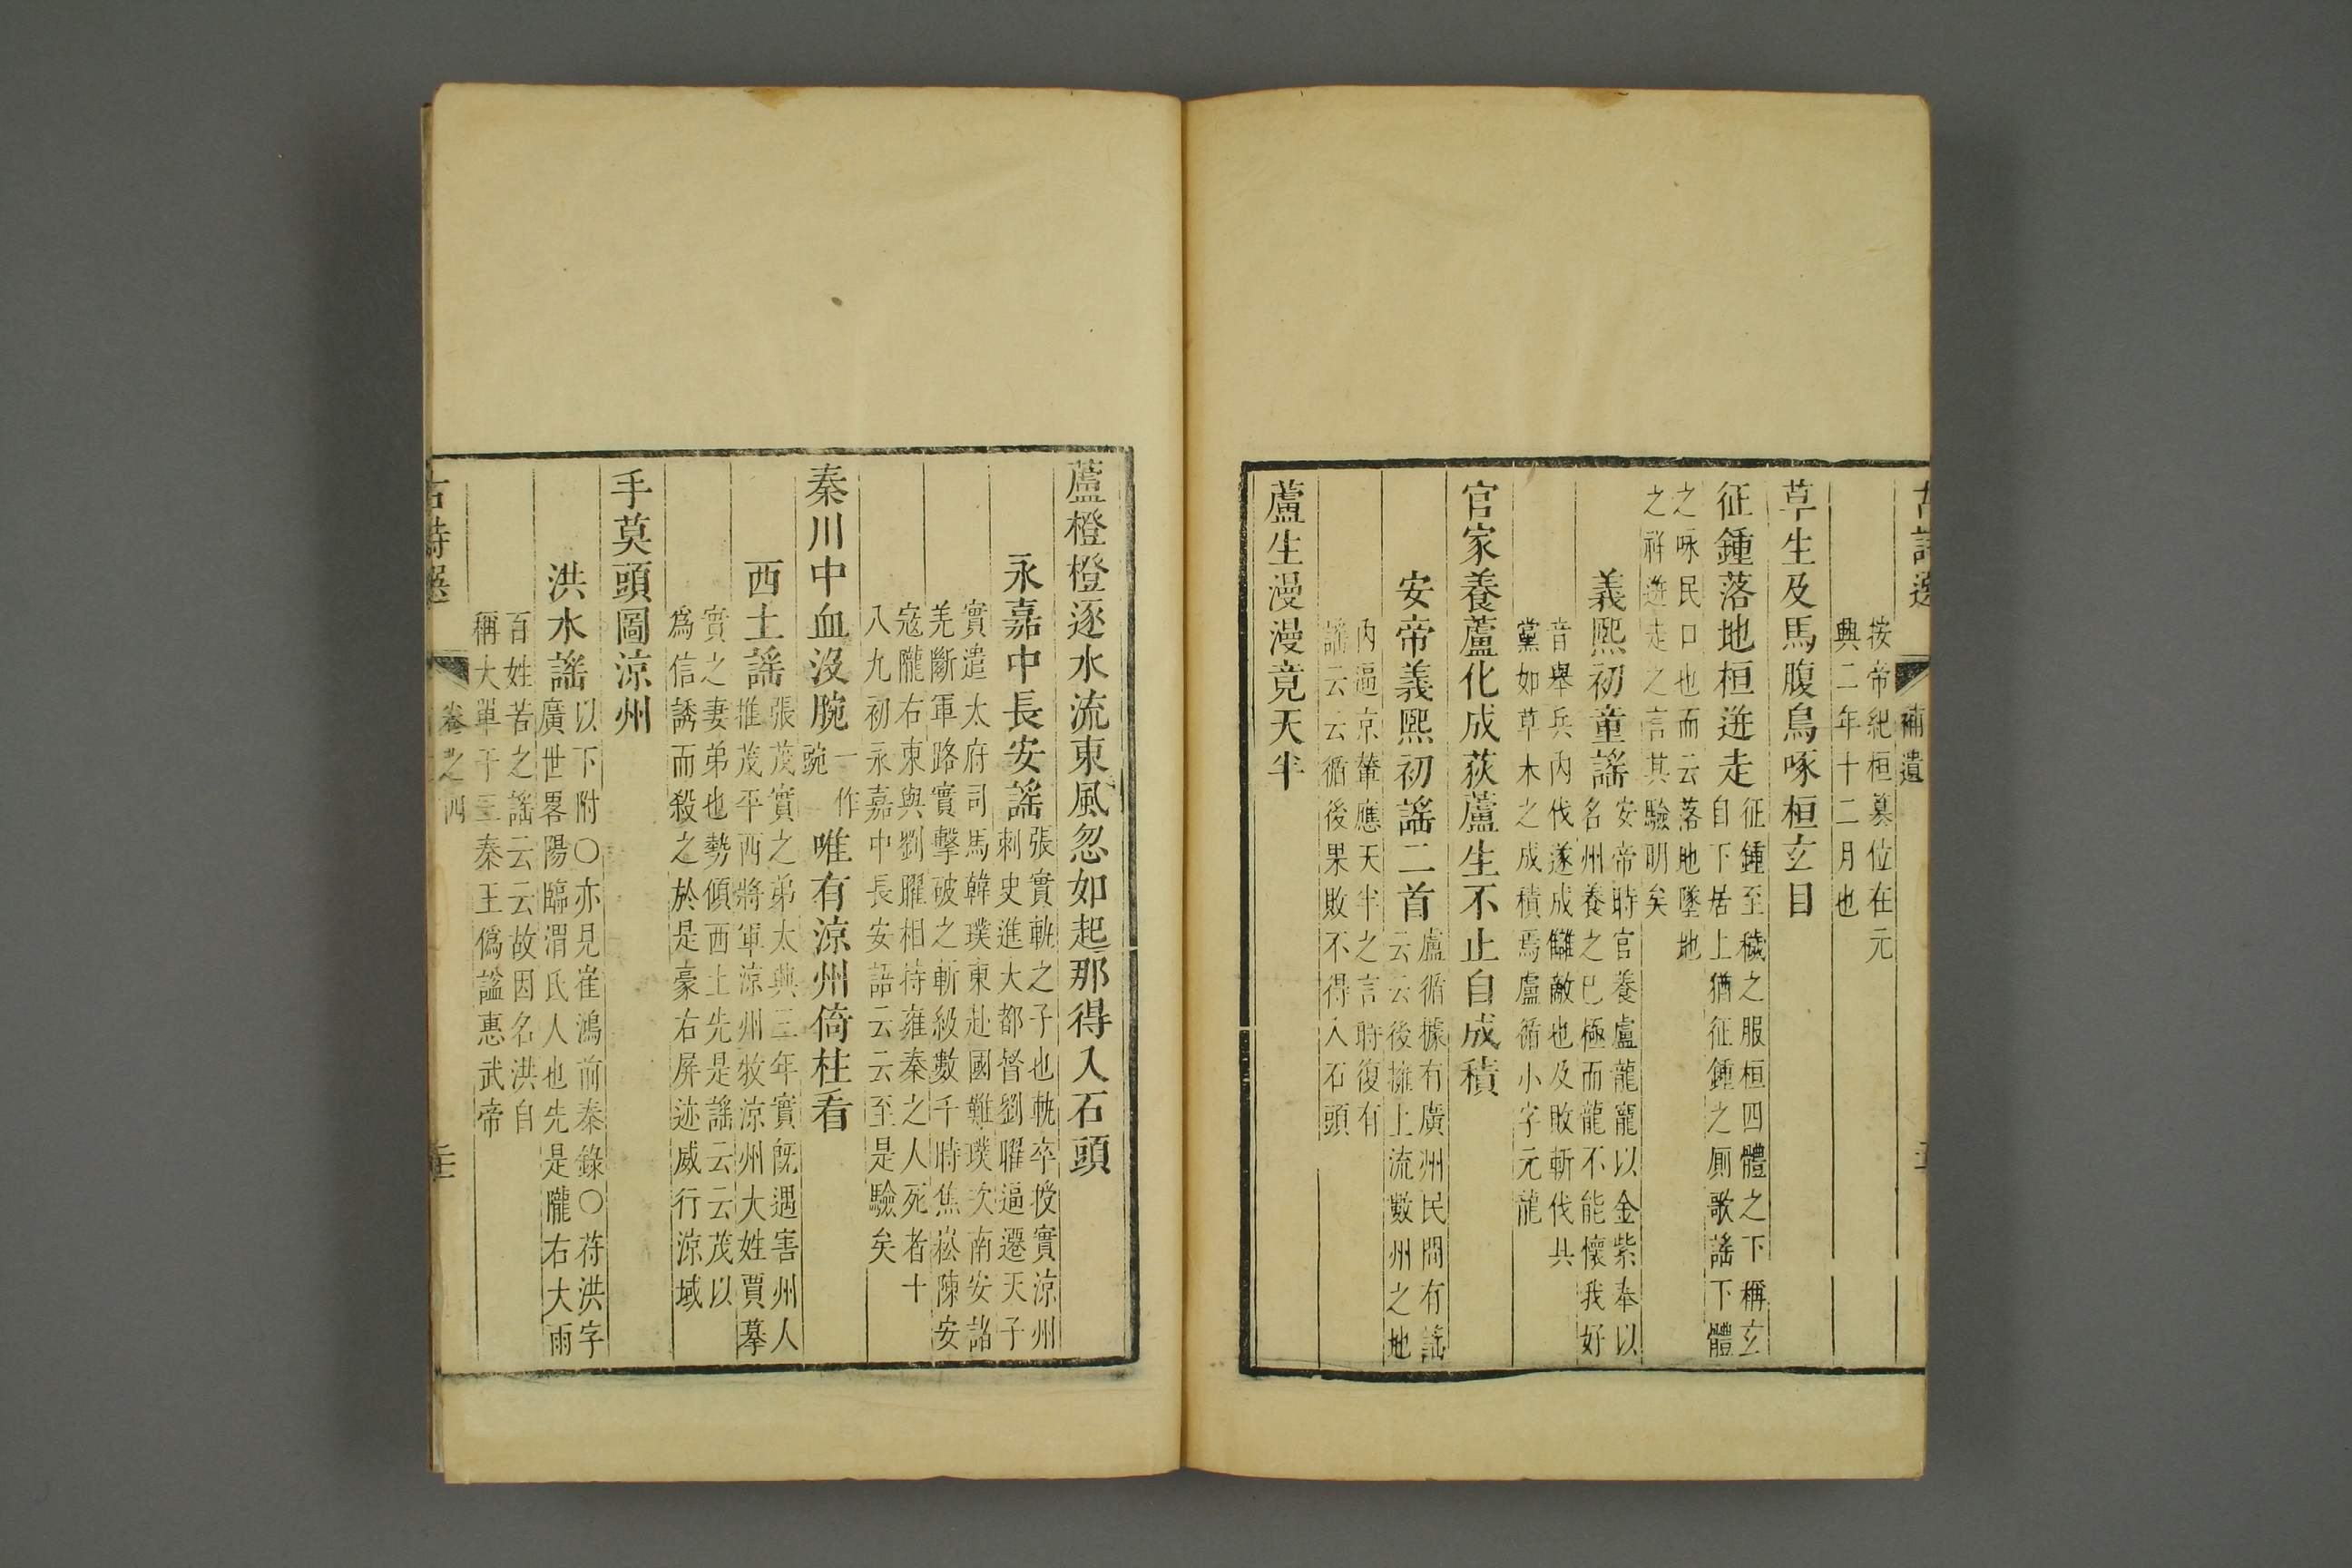 補遺
按帝紀桓篡位在元
興二年十二月也
草生及馬腹烏啄桓玄目
征鍾落地桓迸走征鍾至穢之服桓四體之下稱玄
自下居上猶征鍾之厠歌謠下體
之咏民口也而云落地墜地
之祥迸走之言其驗明矣
義熙初童謠安帝時官養盧龍寵以金紫奉以
名州養之已極而龍不能懷我好
音舉兵內伐遂成讎敵也及敗斬伐其
黨如草木之成積焉盧循小字元龍
官家養蘆化成荻蘆生不止自成積
安帝義熙初謠二首盧循據有廣州民間有謠
云云後擁上流數州之地
內逼京輦應天半之言時復有
謠云云循後果敗不得入石頭
蘆生漫漫竟天半
蘆橙橙逐水流東風忽如起那得入石頭
永嘉中長安謠張寔軌之子也軌卒授寔涼州
刺史進大都督劉曜逼遷天子
實遣太府司馬韓璞東赴國難璞次南安諸
羌斷軍路實擊破之斬級數千時焦崧陳安
寇隴右東與劉曜相持雍秦之人死者十
八九初永嘉中長安語云云至是驗矣
秦川中血沒腕一作豌唯有涼州倚柱看
西土謠張茂實之弟太興三年實旣遇害州人
推茂平西將軍涼州牧涼州大姓賈摹
實之妻弟也勢傾西土先是謠云云茂以
爲信誘而殺之於是豪右屏迹威行涼域
手莫頭圖涼州
洪水謠以下附〇亦見崔鴻前秦錄〇苻洪字
廣世畧陽臨渭氐人也先是隴右大雨
百姓苦之謠云云故因名洪自
稱大單于三秦王僞謚惠武帝
古詩選 卷之四